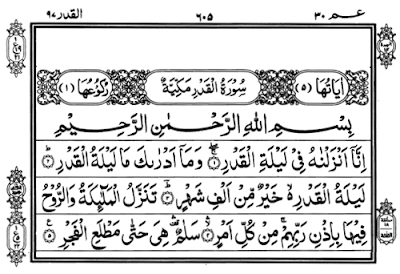 عم ٣٠ ٦٠٥ القدر ٩٧
اٰيَاتُهَا (٥) سُوْرَةُ الْقَدْرِ مَكِّيَّةٌ رُكُوْعُهَا (١)
بِسْمِ اللهِ الرَّحْمٰنِ الرَّحِيْمِ
اِنَّاۤ اَنْزَلْنٰهُ فِيْ لَيْلَةِ الْقَدْرِ ۝١ وَمَاۤ اَدْرٰىكَ مَا لَيْلَةُ الْقَدْرِ ۝٢
لَيْلَةُ الْقَدْرِ ۙ خَيْرٌ مِّنْ اَلْفِ شَهْرٍ ۝٣ تَنَزَّلُ الْمَلٰٓئِكَةُ وَالرُّوْحُ
فِيْهَا بِاِذْنِ رَبِّهِمْ ۚ مِنْ كُلِّ اَمْرٍ ۝٤ سَلٰمٌ ۛ هِيَ حَتّٰى مَطْلَعِ الْفَجْرِ ۝٥